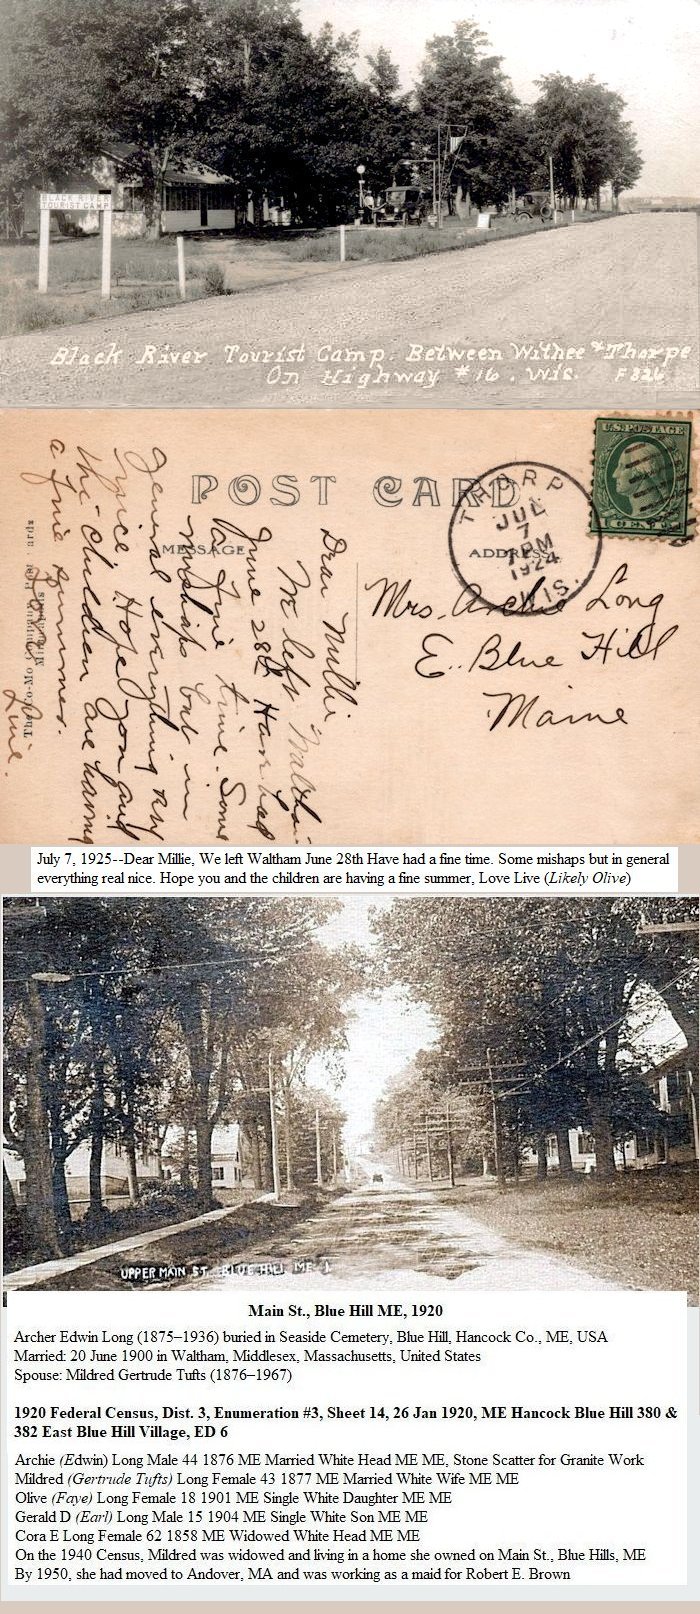 BLACK RIVER
TOURIST CAMP
Black River Tourist Camp. Between Withee & Thorpe
On Highway #16. Wis. F826
POST CARD
MESSAGE
ADDRESS
U.S. POSTAGE
1 CENT 1
THORP
JUL
7
PM
1924
WIS.
Mrs. Archie Long
E. Blue Hill
Maine
Dear Millie
We left Waltham
June 28th Have had
a fine time. Some
mishaps but in
general everything
nice Hope you and
the children are having
a fine summer.
Love
The Co-Mo Company
Minneapolis
July 7, 1925--Dear Millie, We left Waltham June 28th Have had a fine time. Some mishaps but in general
everything real nice. Hope you and the children are having a fine summer, Love Live (Likely Olive)
UPPER MAIN ST. BLUE HILL ME 1
Main St., Blue Hill ME, 1920
Archer Edwin Long (1875–1936) buried in Seaside Cemetery, Blue Hill, Hancock Co., ME, USA
Married: 20 June 1900 in Waltham, Middlesex, Massachusetts, United States
Spouse: Mildred Gertrude Tufts (1876–1967)
1920 Federal Census, Dist. 3, Enumeration #3, Sheet 14, 26 Jan 1920, ME Hancock Blue Hill 380 &
382 East Blue Hill Village, ED 6
Archie (Edwin) Long Male 44 1876 ME Married White Head ME ME, Stone Scatter for Granite Work
Mildred (Gertrude Tufts) Long Female 43 1877 ME Married White Wife ME ME
Olive (Faye) Long Female 18 1901 ME Single White Daughter ME ME
Gerald D (Earl) Long Male 15 1904 ME Single White Son ME ME
Cora E Long Female 62 1858 ME Widowed White Head ME ME
On the 1940 Census, Mildred was widowed and living in a home she owned on Main St., Blue Hills, ME
By 1950, she had moved to Andover, MA and was working as a maid for Robert E. Brown